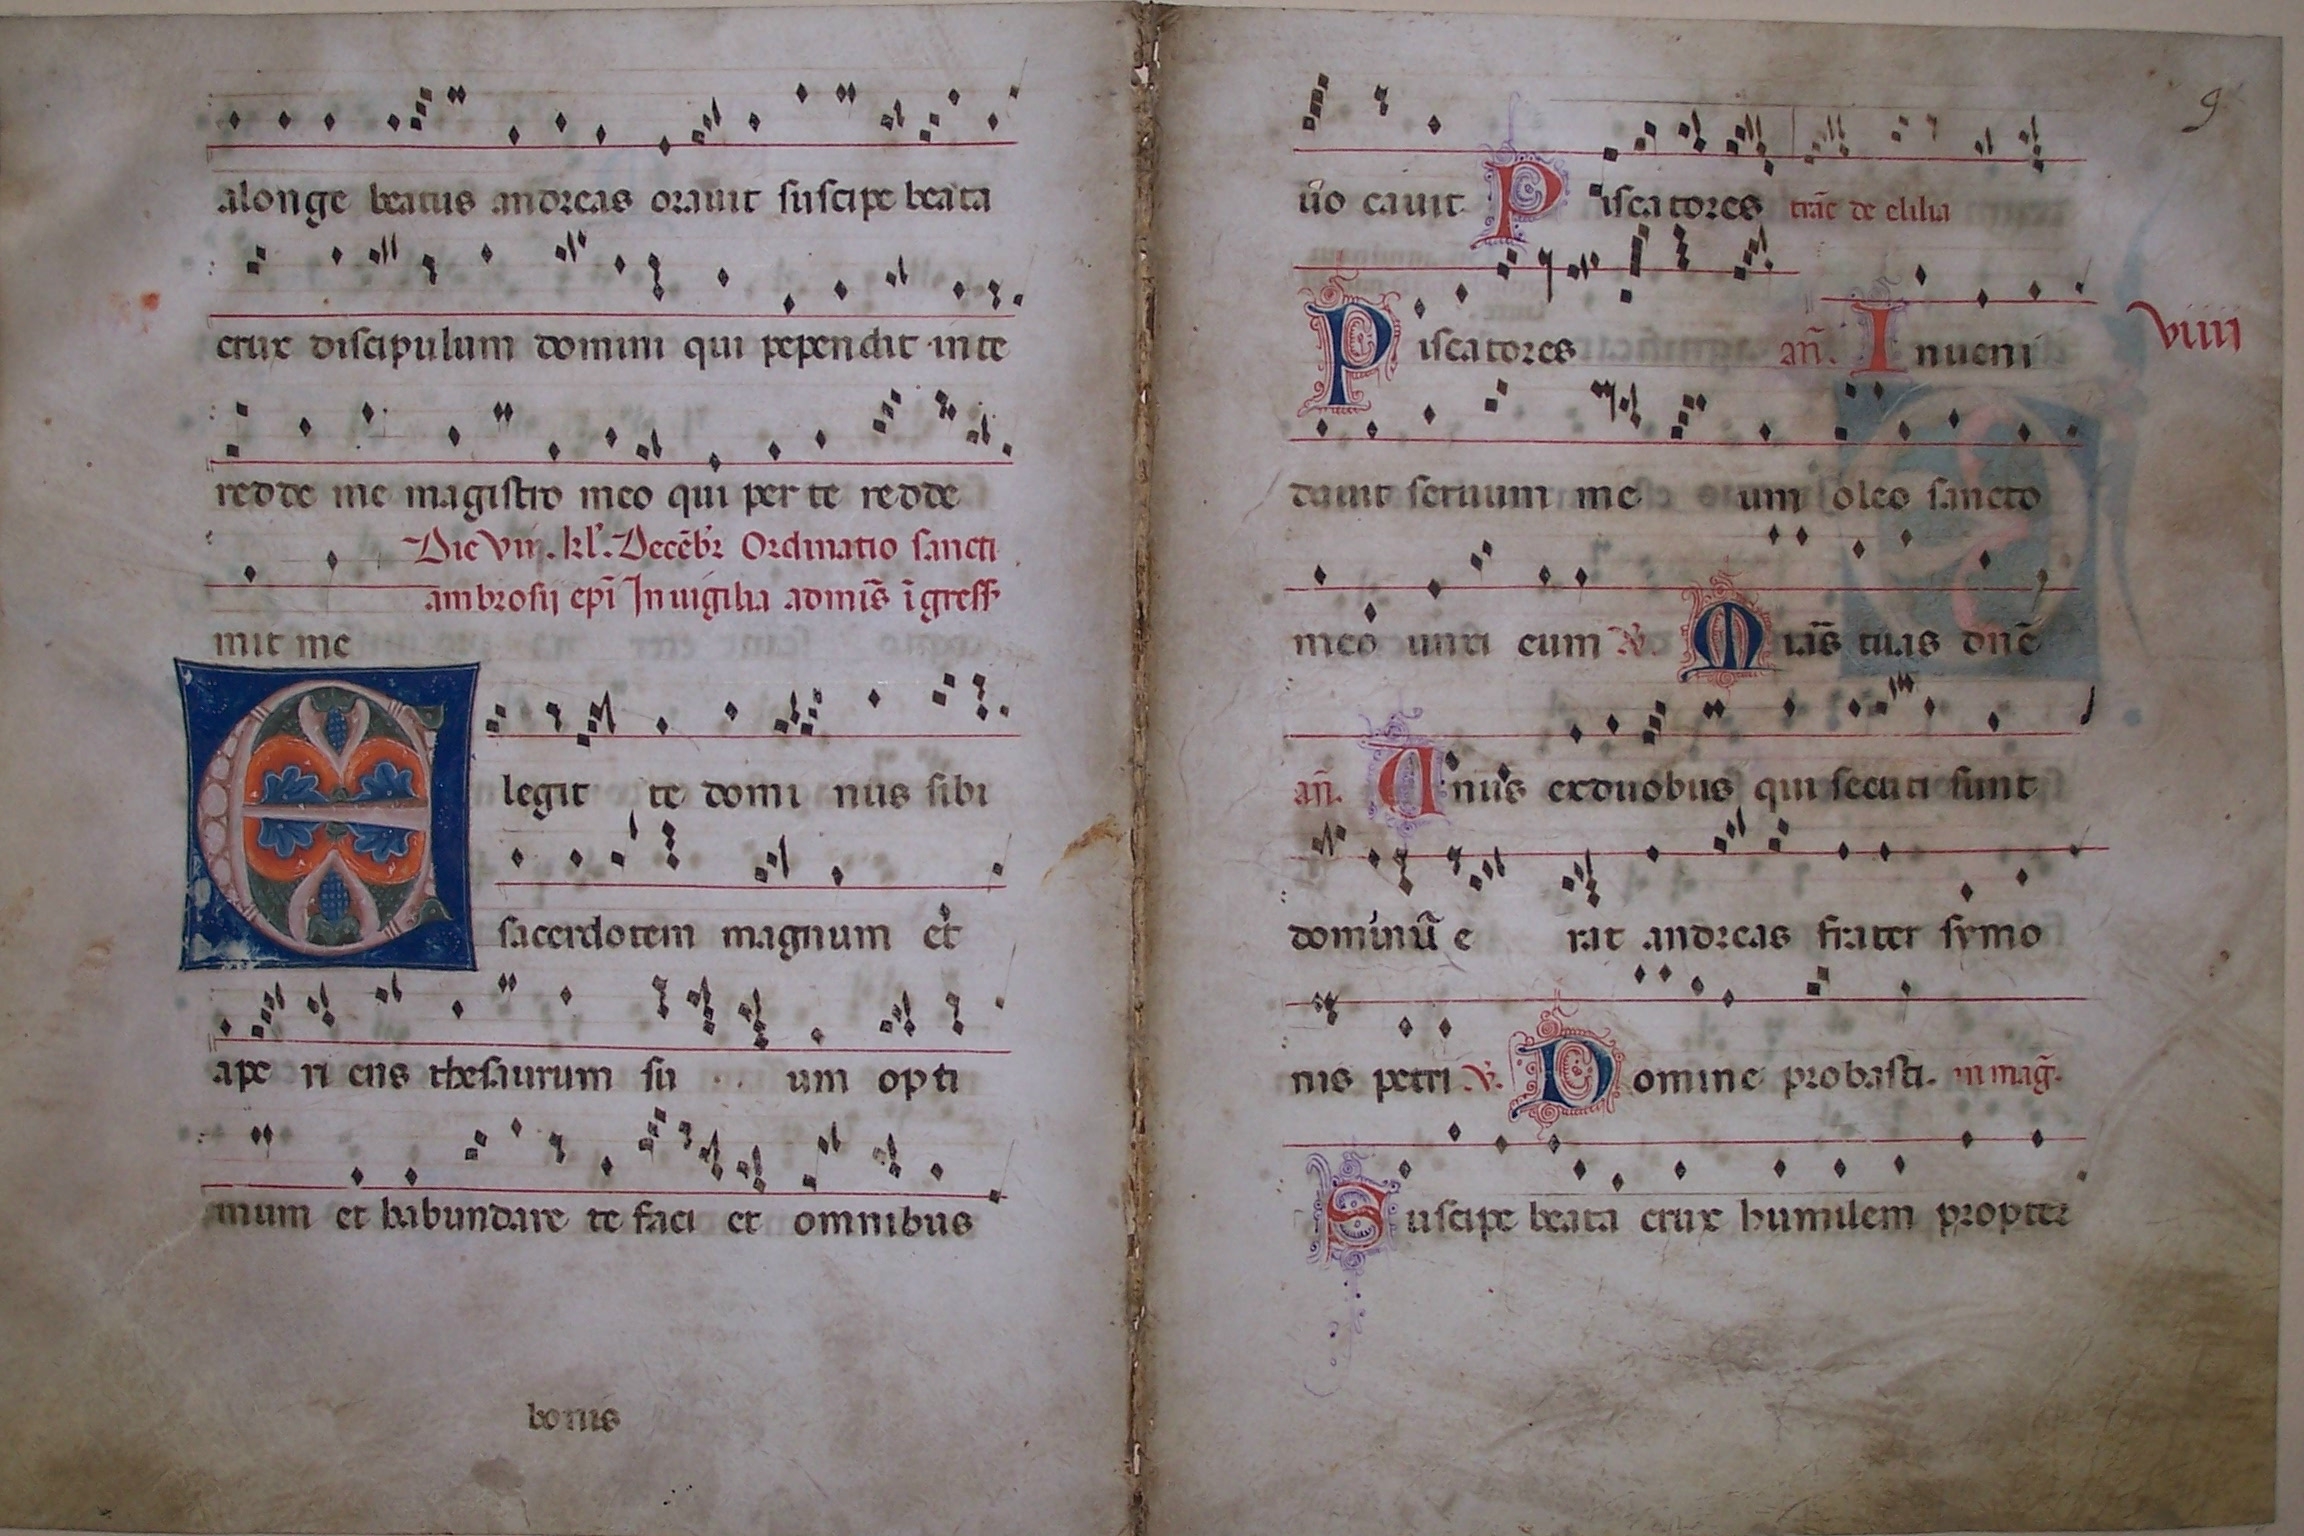 alonge beatus andreas orauit suscipe beata
crux discipulum domini qui pependit in te
redde me magistro meo qui per te redde
Die vii. kl'. Decēbr Ordinatio sancti
ambrosij epī In uigilia ad mis̄ īgress
mit me
Elegit te domi nus sibi
sacerdotem magnum et
ape ri ens thesaurum su um opti
mum et habundare te faci et omnibus
bonus
9
uo cauit Piscatores de
Piscatores añ. Inueni
viiii
dauid seruum me um oleo sancto
meo unxi eum Mias̄ tuas dnē
añ. Unus exduobus qui secuti sunt
dominū e rat andreas frater symo
nis petri Domine probasti. in maḡ.
Suscipe beata crux humilem propter